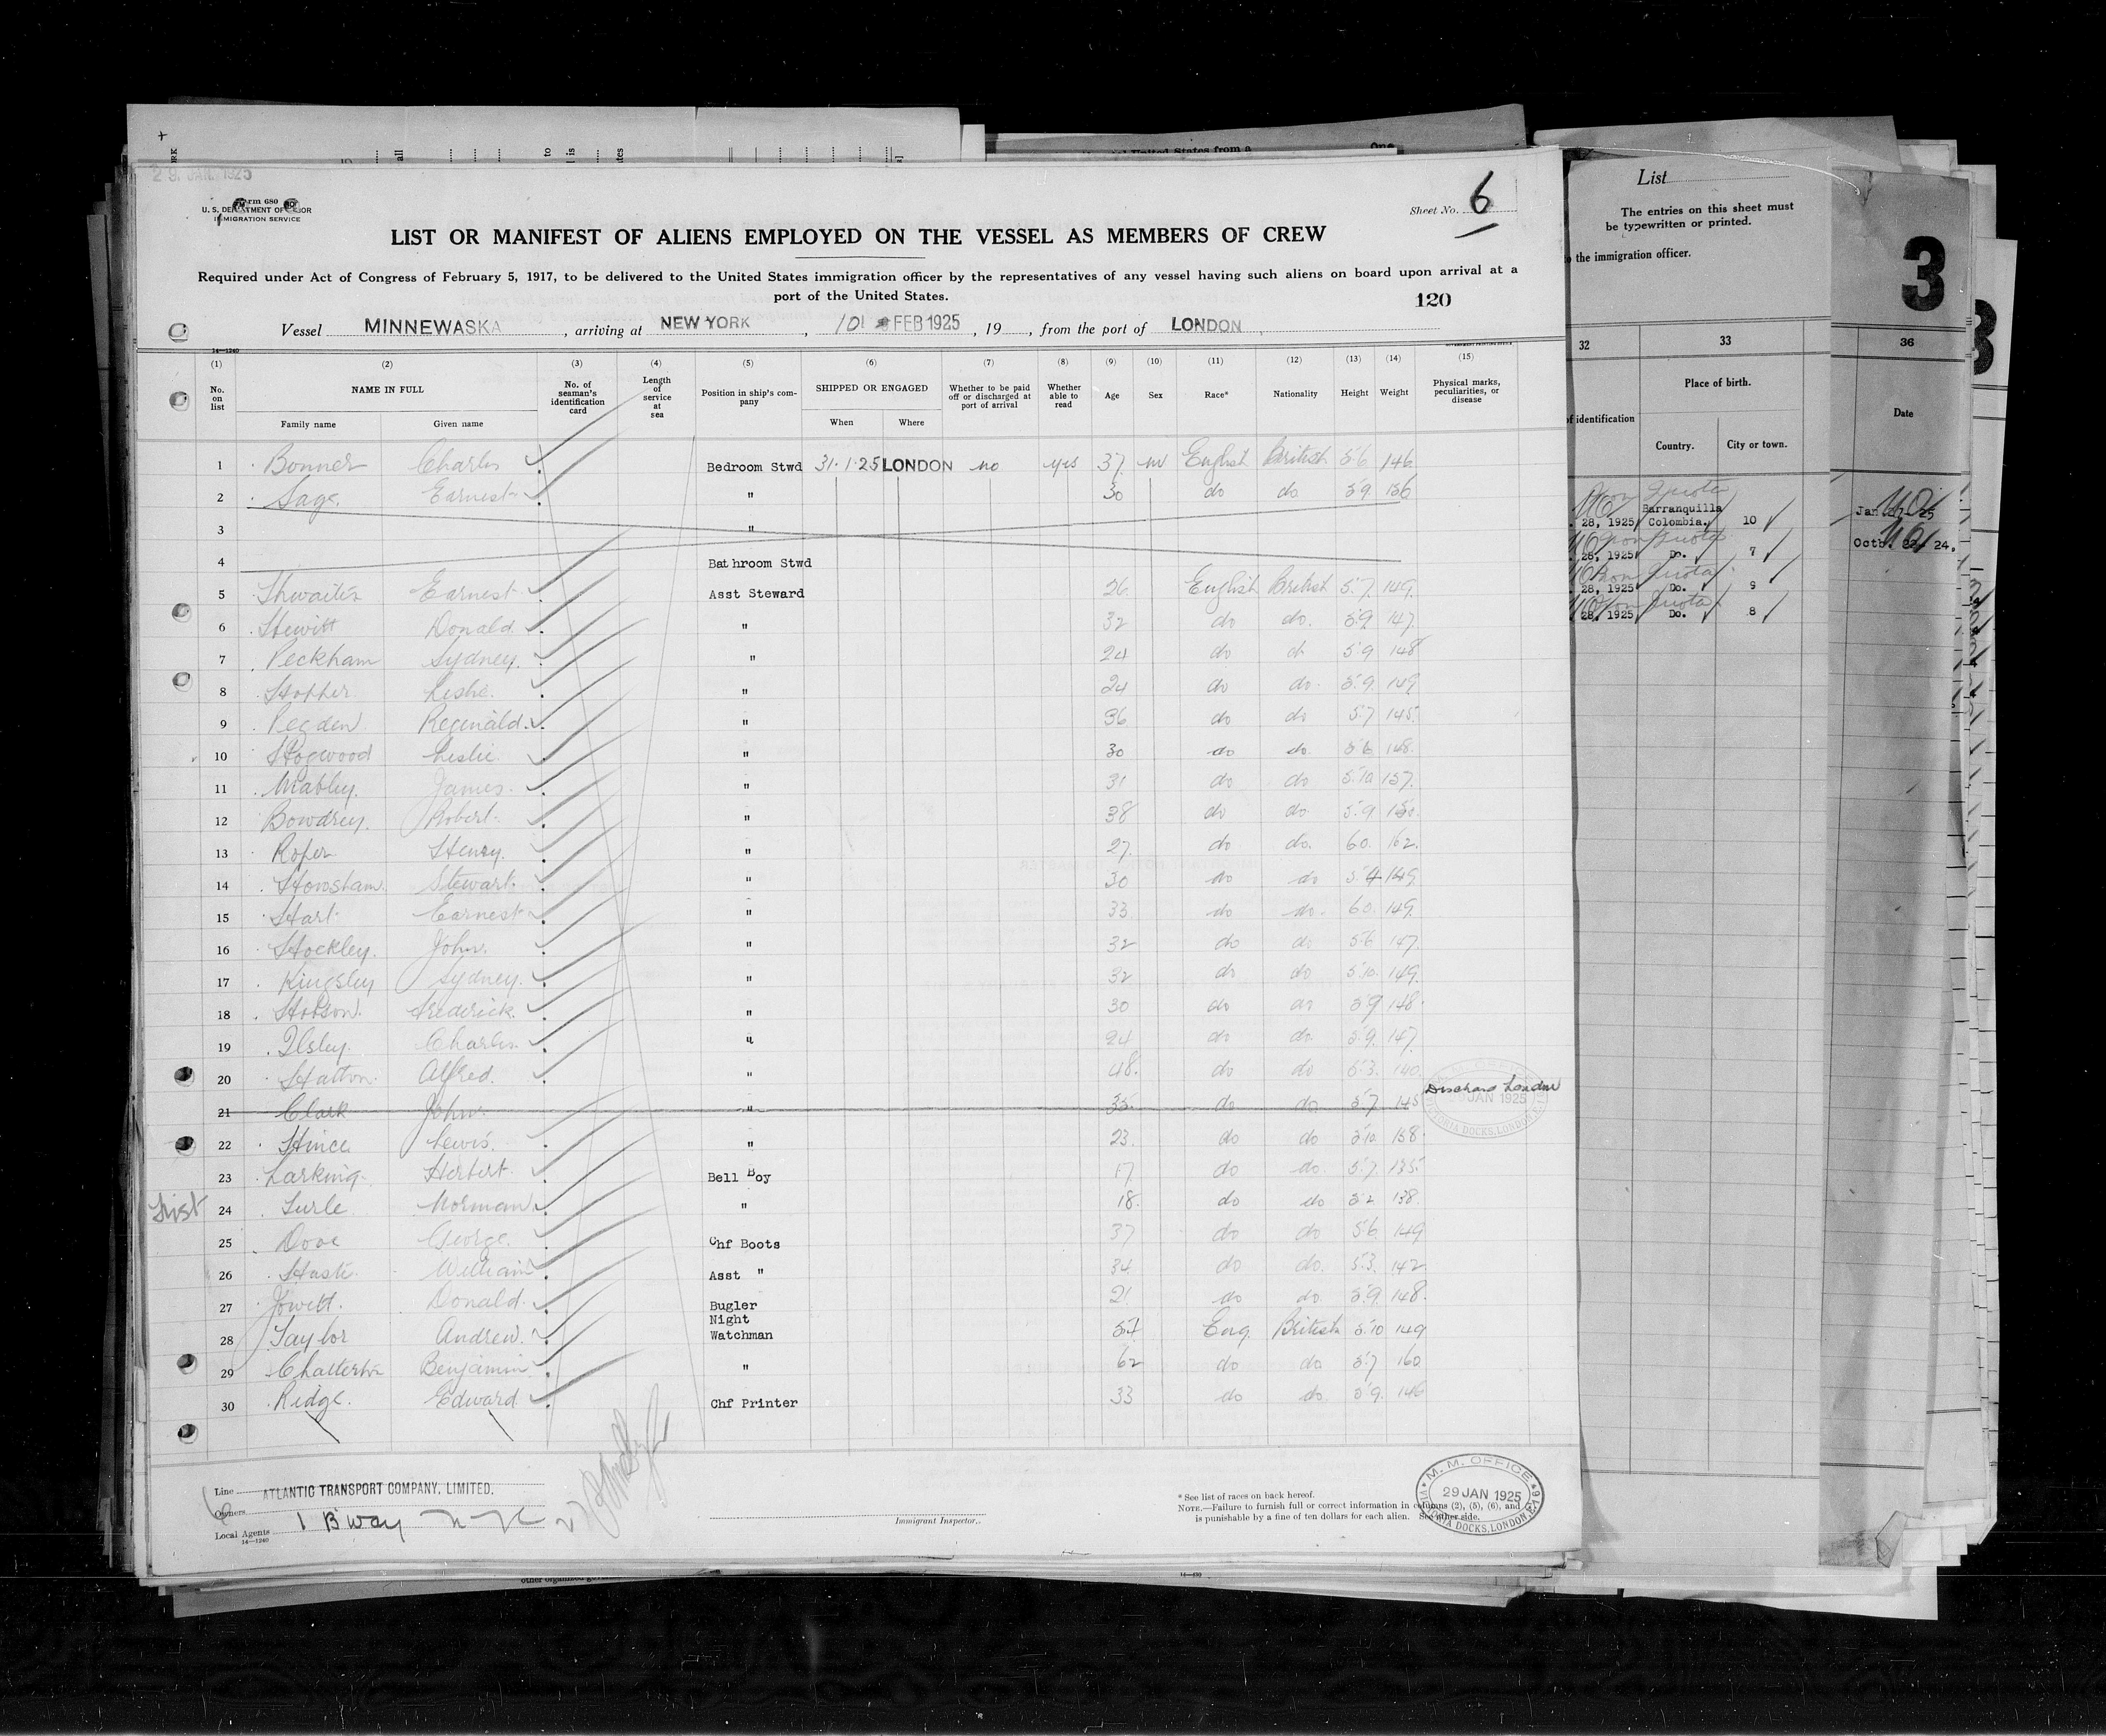 29. JAN. 1925
Form 680
U. S. DEPARTMENT OF LABOR
IMMIGRATION SERVICE
Sheet No. 6
LIST OR MANIFEST OF ALIENS EMPLOYED ON THE VESSEL AS MEMBERS OF CREW
Required under Act of Congress of February 5, 1917, to be delivered to the United States immigration officer by the representatives of any vessel having such aliens on board upon arrival at a
port of the United States.
120
Vessel MINNEWASKA, arriving at NEW YORK, 10 FEB 1925, 19, from the port of LONDON
14—1240
(1) (2) (3) (4) (5) (6) (7) (8) (9) (10) (11) (12) (13) (14) (15)
No. on list NAME IN FULL Family name Given name No. of seaman's identification card Length of service at sea Position in ship's company SHIPPED OR ENGAGED When Where Whether to be paid off or discharged at port of arrival Whether able to read Age Sex Race* Nationality Height Weight Physical marks, peculiarities, or disease
1 Bonner Charles Bedroom Stwd 31·1·25 LONDON no yes 37 m English British 5.6 146
2 Sage Earnest " 30 do do 5.9 156
3 "
4 Bathroom Stwd
5 Thwaites Earnest Asst Steward 26 English British 5.7 149
6 Hewitt Donald " 32 do do 5.9 147
7 Peckham Sydney " 24 do do 5.9 148
8 Hopher Leslie " 24 do do 5.9 149
9 Pegden Reginald " 36 do do 5.7 145
10 Hogwood Leslie " 30 do do 5.6 148
11 Mabley James " 31 do do 5.10 157
12 Bowdrey Robert " 38 do do 5.9 150
13 Roper Henry " 27 do do 60 162
14 Howsham Stewart " 30 do do 5.4 149
15 Hart Earnest " 33 do do 60 149
16 Hockley John " 32 do do 5.6 147
17 Kingsley Sydney " 32 do do 5.10 149
18 Hobson Frederick " 30 do do 5.9 148
19 Ilsley Charles " 24 do do 5.9 147
20 Hatton Alfred " 48 do do 5.3 140
21 Clark John " 35 do do 5.7 145 Discharg London
22 Hince Lewis " 23 do do 5.10 158
23 Larking Herbert Bell Boy 17 do do 5.7 135
24 Turle Norman " 18 do do 5.2 138
25 Dove George Chf Boots 37 do do 5.6 149
26 Haste William Asst " 34 do do 5.3 142
27 Jowett Donald Bugler 21 do do 5.9 148
28 Taylor Andrew Night Watchman 57 Eng British 5.10 149
29 Chatterton Benjamin " 62 do do 5.7 160
30 Ridge Edward Chf Printer 33 do do 5.9 146
Line ATLANTIC TRANSPORT COMPANY, LIMITED.
Owners
Local Agents 1 Bway N Y C
14—1240
Immigrant Inspector.
* See list of races on back hereof.
NOTE.—Failure to furnish full or correct information in columns (2), (5), (6), and
is punishable by a fine of ten dollars for each alien. See other side.
M. M. OFFICE
29 JAN 1925
VICTORIA DOCKS, LONDON, E.16
List
The entries on this sheet must
be typewritten or printed.
the immigration officer.
3
32 33 36
Place of birth.
of identification Country. City or town. Date
Non Quota
Barranquilla
28, 1925 Colombia. 10
28, 1925 Do. 7
28, 1925 Do. 9
28, 1925 Do. 8
Octb. 22 24.